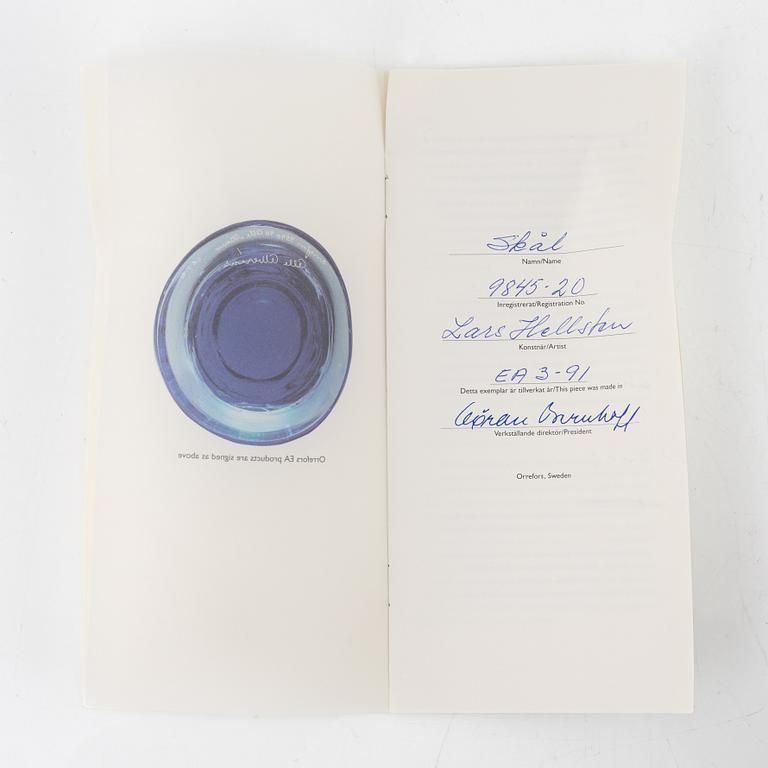 Orrefors EA products are signed as above
Skål
Namn/Name
9845-20
Inregistrerat/Registration No.
Lars Hellsten
Konstnär/Artist
EA 3-91
Detta exemplar är tillverkat år/This piece was made in
Göran
Verkställande direktör/President
Orrefors, Sweden